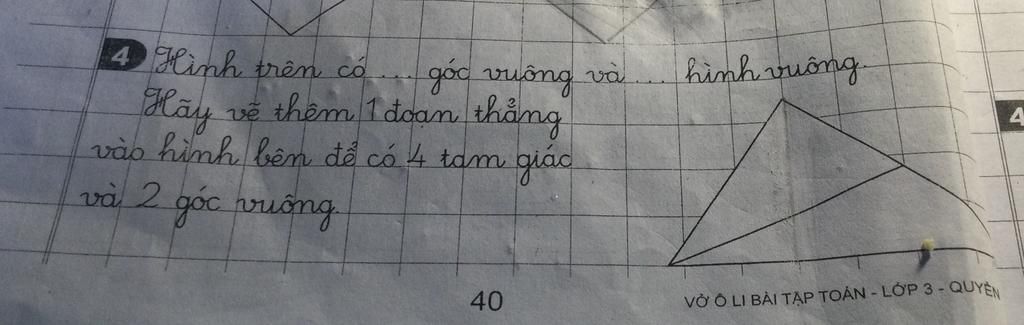 4 Hình trên có ... góc vuông và ... hình vuông.
Hãy vẽ thêm 1 đoạn thẳng
vào hình bên để có 4 tam giác
và 2 góc vuông.
4
40
VỞ Ô LI BÀI TẬP TOÁN - LỚP 3 - QUYỂN